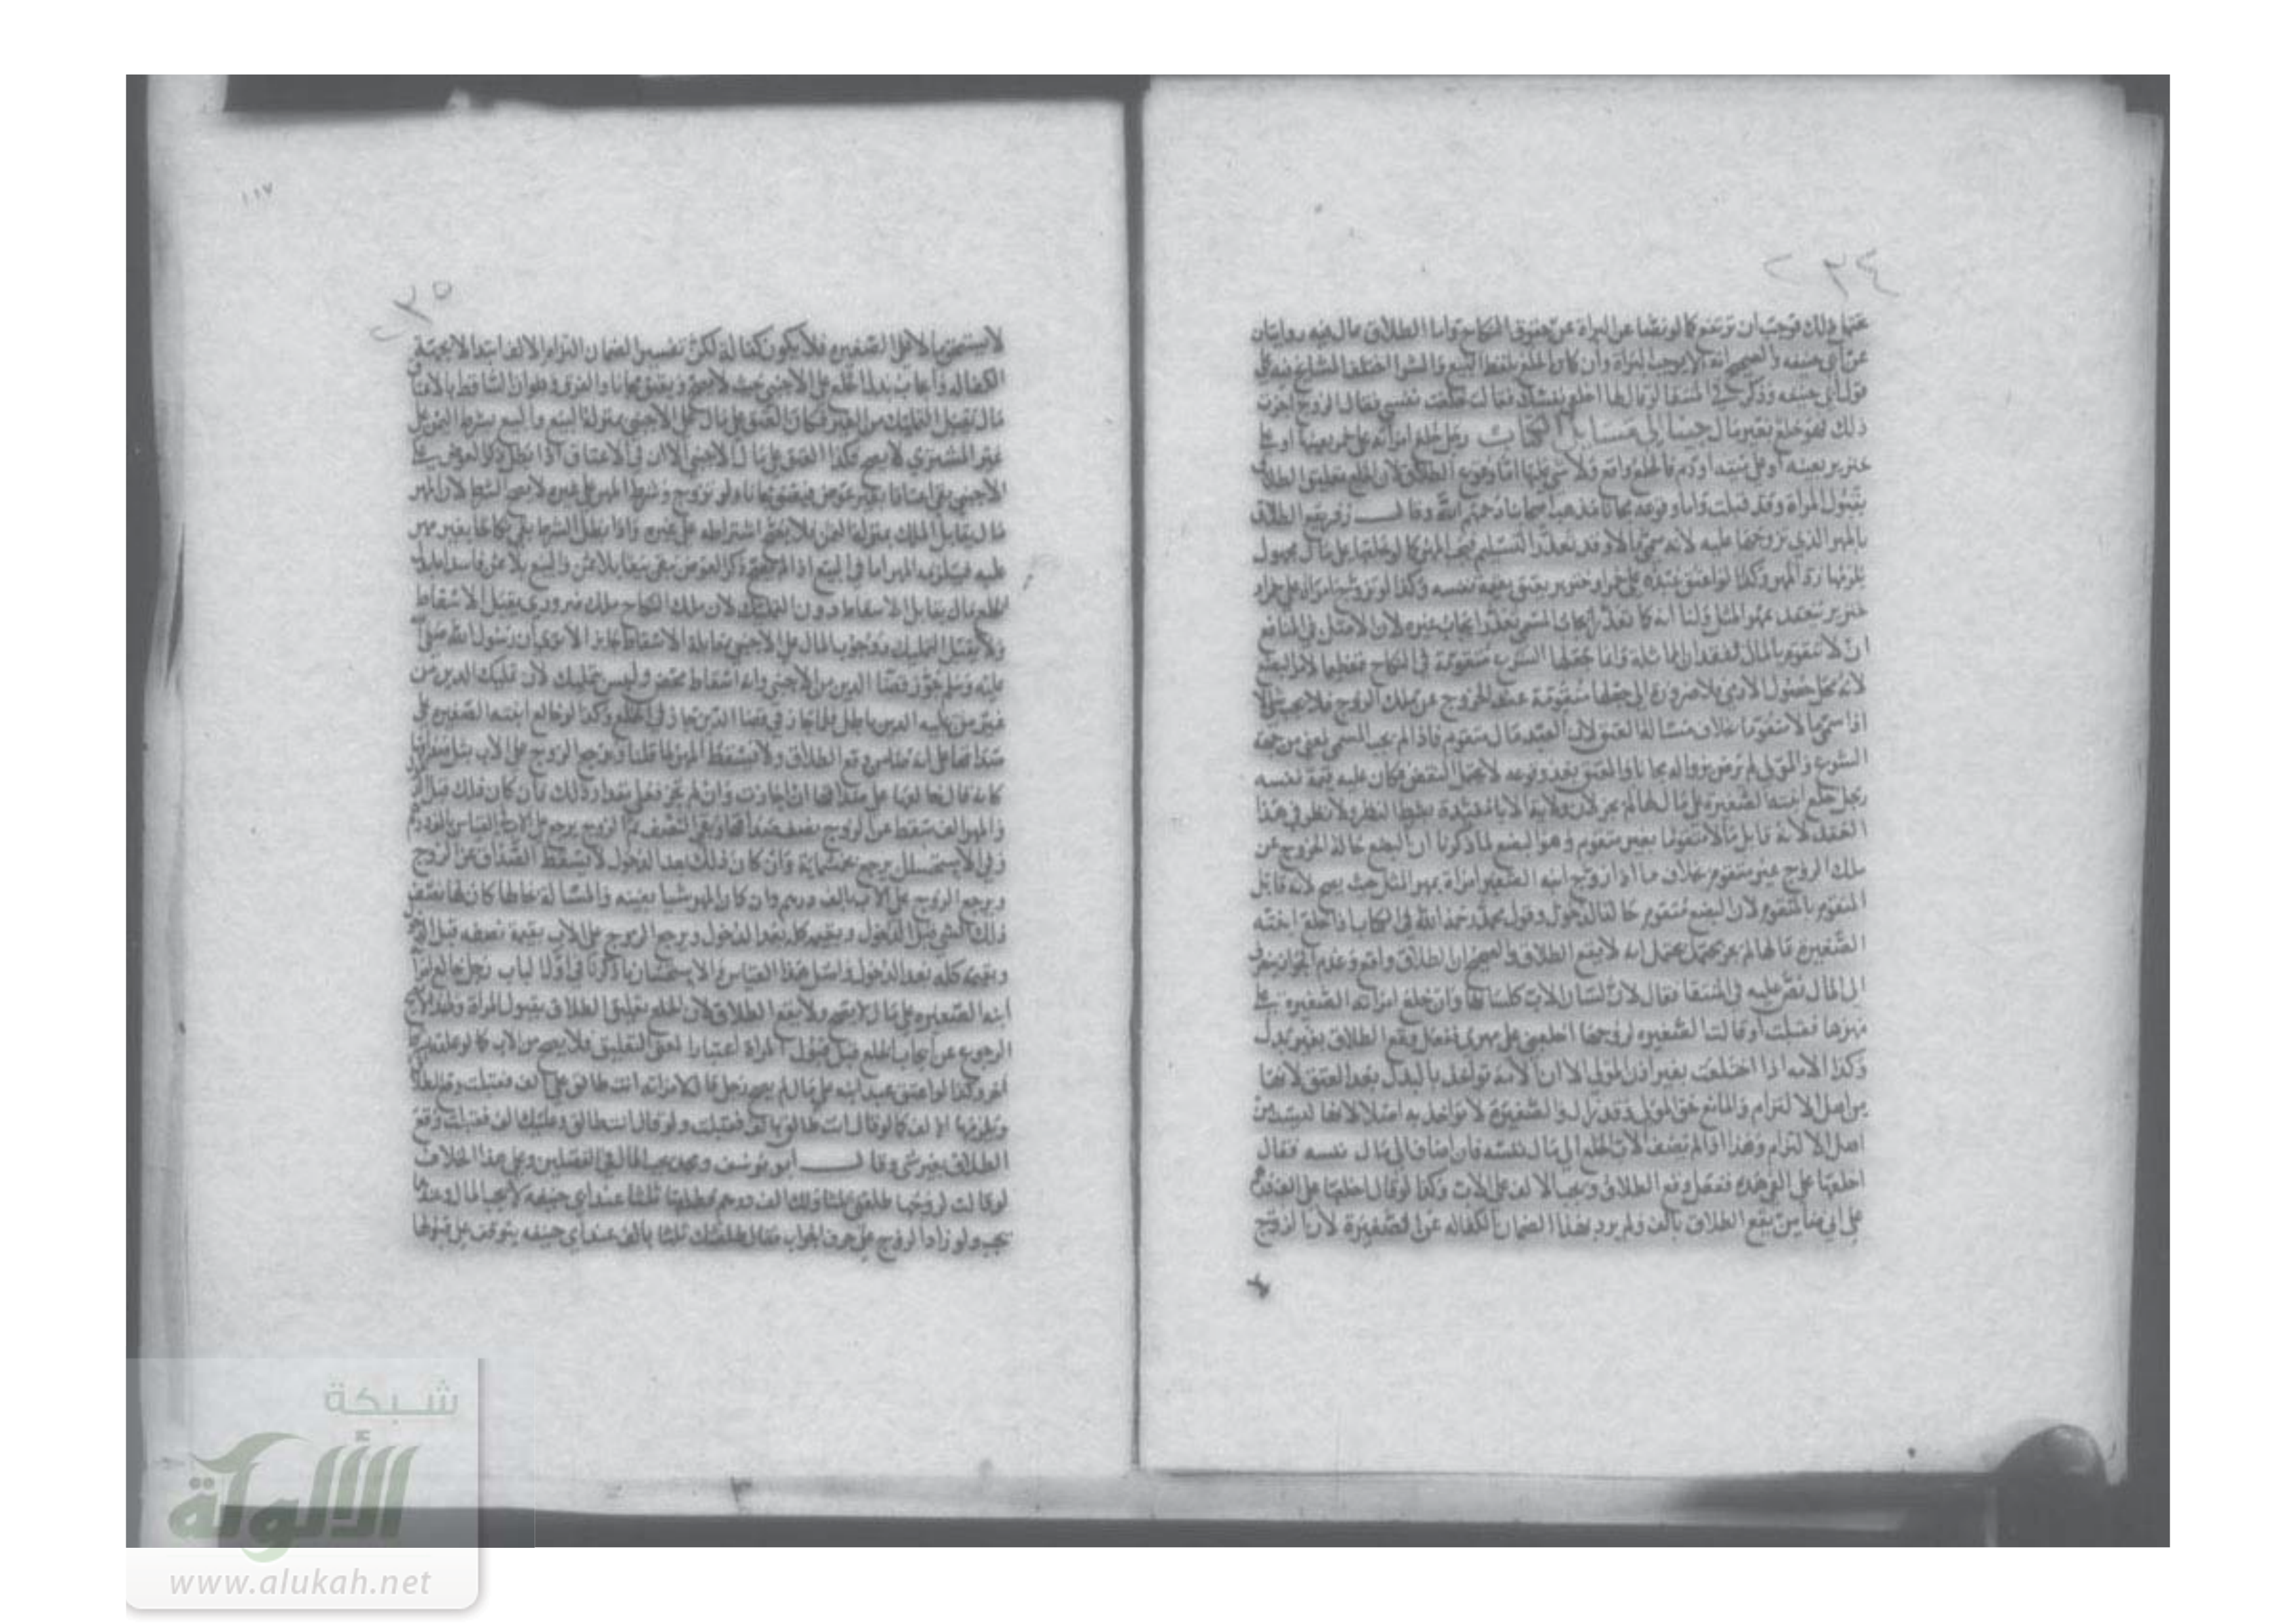 ٢٣٤
عنها فوجب ان كما لو نصا عن البراة عن حقوق النكاح واما الطلاق على مال فيه روايتان
عن ابي حنيفه والصحيح انه لا يوجب البراة وان كان الخلع بلفظ البيع والشرا اختلف المشايخ فيه على
قول ابي حنيفه وذكر في المنتقا لو قال لها اخلعي نفسك فقالت خلعت نفسي فقال الزوج اجزت
ذلك فهو خلع بغير مال جينا الى مسايل الكتاب رجل خلع امراته على خمر بعينها او على
خنزير بعينه او على ميته او دم فالخلع واقع ولا شي عليها اما وقوع الطلاق لان الخلع تعليق الطلاق
بقبول المراة وقد قبلت واما وقوعه مجانا مذهب اصحابنا رحمهم الله وقال زفر يقع الطلاق
بالمهر الذي تزوجها عليه لانه سمى مالا وقد تعذر التسليم كما لو خلعها على مال مجهول
يلزمها رد المهر وكذا لو اعتق عبده على خمر او خنزير يعتق بقيمة نفسه وكذا لو تزوج امراة على خمر او
خنزير ينعقد بمهر المثل ولنا انه كما تعذر ايجاب المسمى تعذر ايجاب غيره لان الاصل في المنافع
ان لا تتقوم بالمال لفقدان المماثلة وانما جعلها الشرع متقومة في النكاح تعظيما لامر البضع
لانه محل حصول الادمي ولا ضرورة الى جعلها متقومة عند الخروج عن ملك الزوج فلا يجب المال
اذا سمى ما لا متقوما بخلاف مسالة العتق لان العبد مال متقوم فاذا لم يجب المسمى لمعنى من جهة
الشرع والمولى لم يرض بزواله مجانا والعتق بعد وقوعه لا يحتمل النقض فكان عليه قيمة نفسه
رجل خلع ابنته الصغيرة على مالها لم يجز لان ولاية الاباء مقيدة بشرط النظر ولا نظر في هذا
العقد لانه قابل مالا متقوما بغير متقوم وهو البضع لما ذكرنا ان البضع حالة الخروج عن
ملك الزوج غير متقوم بخلاف ما اذا زوج ابنه الصغير امراة بمهر المثل حيث يصح لانه قابل
المتقوم بالمتقوم لان البضع متقوم حالة الدخول وقول محمد رحمه الله في الكتاب اذا خلع ابنته
الصغيرة بمالها لم يجز يحتمل انه لا يقع الطلاق والصحيح ان الطلاق واقع وعدم الجواز ينصرف
الى المال نص عليه في المنتقا فقال لان لسان الاب كلسانها وان خلع امراته الصغيرة على
مهرها فقبلت او قالت الصغيرة لزوجها اخلعني على مهري ففعل وقع الطلاق بغير بدل
وكذا الامة اذا اختلعت بغير اذن المولى الا ان الامة تواخذ بالبدل بعد العتق لانها
من اهل الالتزام والمانع حق المولى وقد زال والصغيرة لا تواخذ به اصلا لانها ليست من
اهل الالتزام وهذا اذا لم يضف الاب الخلع الى مال نفسه فان اضاف الى مال نفسه فقال
اخلعها على الفي هذه ففعل وقع الطلاق ويجب الالف على الاب وكذا لو قال اخلعها على الف
على اني ضامن يقع الطلاق بالف ولم يرد بهذا الضمان الكفالة عن الصغيرة لان الزوج
١١٧
٢٣٥
لا يستحق مالا على الصغيرة فلا يكون كفالة لكن تفسير الضمان التزام الالف ابتدا لا بجهة
الكفالة وايجاب بدل الخلع على الاجنبي حيث لا يصح ويعتق مجانا والفرق وهو ان الساقط بالاعتاق
مال يقبل التمليك من الغير فكان العتق على مال على الاجنبي بمنزلة البيع والبيع بشرط الثمن على
غير المشتري لا يصح فكذا العتق على مال الاجنبي الا ان في الاعتاق اذا بطل ذكر العوض على
الاجنبي بقي اعتاقا بغير عوض فيعتق مجانا ولو تزوج وشرط المهر على غيره لا يصح الشرط لان المهر
مال يقابل الملك بمنزلة الثمن فلا يصح اشتراطه على غيره واذا بطل الشرط بقي نكاحا بغير مهر
عليه فيلزمه المهر اما في البيع اذا لم يصح ذكر العوض بقي بيعا بلا ثمن والبيع بلا ثمن فاسد
الخلع مال يقابل الاسقاط دون التمليك لان ملك النكاح ملك ضروري يقبل الاسقاط
ولا يقبل التمليك ووجوب المال على الاجنبي بمقابلة الاسقاط جايز الا ترى ان رسول الله صلى
عليه وسلم جوز قضا الدين من الاجنبي وانه اسقاط محض وليس بتمليك لان تمليك الدين من
غير من عليه الدين باطل فلما جاز في قضا الدين جاز في الخلع وكذا لو خالع ابنته الصغيرة على
صداقها على انه ضامن وقع الطلاق ولا يسقط المهر لما قلنا ويرجع الزوج على الاب بمثل صداقها
كانه قال خالعها على صداقها ان اجازت وان لم تجز فعلي مقدار ذلك فان كان ذلك قبل
والمهر الف سقط عن الزوج نصف صداقها وبقي النصف ثم الزوج يرجع على الاب في القياس بالف درهم
وفي الاستحسان يرجع بخمسماية وان كان ذلك بعد الدخول لا يسقط الصداق عن الزوج
ويرجع الزوج على الاب بالف درهم وان كان المهر شيا بعينه والمسالة بحالها كان لها نصف
ذلك الشي قبل الدخول وبقيمة كله بعد الدخول ويرجع الزوج على الاب بقيمة نصفه قبل
وبقيمة كله بعد الدخول واصل هذا القياس والاستحسان ما ذكرنا في اول الباب رجل خالع امراة
ابنه الصغيرة على مال لا يصح ولا يقع الطلاق لان الخلع تعليق الطلاق بقبول المراة ولهذا لا يصح
الرجوع عن ايجاب الخلع قبل قبول المراة اعتبارا لمعنى التعليق فلا يصح من الاب كما لو علقه
اخر وكذا لو اعتق عبد ابنه على مال لم يصح رجل قال لامراته انت طالق على الف فقبلت وقع الطلاق
ويلزمها الالف كما لو قال انت طالق بالف فقبلت ولو قال انت طالق وعليك الف فقبلت وقع
الطلاق بغير شي وقال ابو يوسف ومحمد يجب المال في الفصلين وعلى هذا الخلاف
لو قالت لزوجها طلقني ثلثا ولك الف درهم فطلقها ثلثا عند ابي حنيفه لا يجب المال وعندهما
يجب ولو زاد الزوج على حرف الجواب فقال طلقتك ثلثا بالف عند ابي حنيفه يتوقف على قبولها
شبكة
الألوكة
www.alukah.net